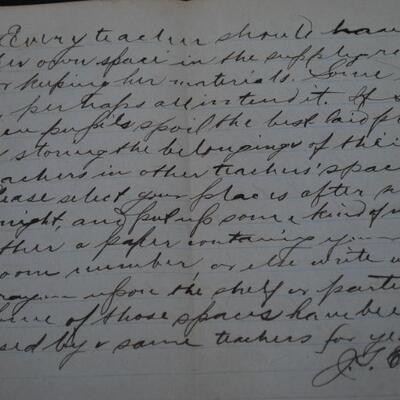 Every teacher should have
her own space in the supply r
for keeping her materials. Some
perhaps all intend it. If s
pupils spoil the best laid p
storing the belongings of thei
teachers in other teachers' space
Please select your places after
night, and put up some kind of
either a paper containing your
room number, or else write w
crayon upon the shelf or parti
Some of those spaces have been
used by same teachers for ye
J. G.